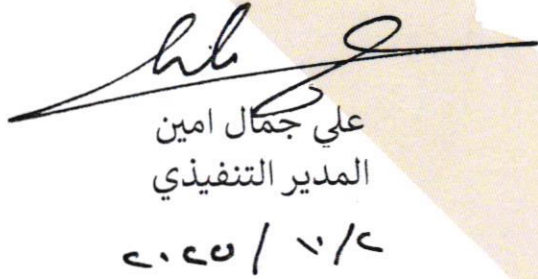 علي جمال امين
المدير التنفيذي
٢٠٢٥ / ١١/٢